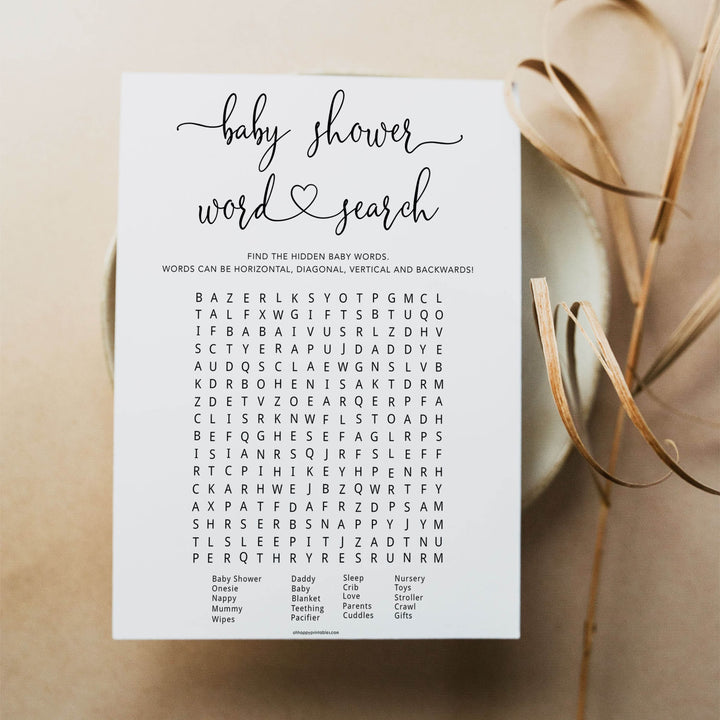 baby shower
word search
FIND THE HIDDEN BABY WORDS.
WORDS CAN BE HORIZONTAL, DIAGONAL, VERTICAL AND BACKWARDS!
B A Z E R L K S Y O T P G M C L
T A L F X W G I F T S B T U Q O
I F B A B A I V U S R L Z D H V
S C T Y E R A P U J D A D D Y E
A U D Q S C L A E W G N S L V B
K D R B O H E N I S A K T D R M
Z D E T V Z O E A R Q E R P F A
C L I S R K N W F L S T O A D H
B E F Q G H E S E F A G L R P S
I S I A N R S Q J R F S L E F F
R T C P I H I K E Y H P E N R H
C K A R H W E J B Z Q W R T F Y
A X P A T F D A F R Z D P S A M
S H R S E R B S N A P P Y J Y M
T L S L E E P I T J Z A D T N U
P E R Q T H R Y R E S R U N R M
Baby Shower Daddy Sleep Nursery
Onesie Baby Crib Toys
Nappy Blanket Love Stroller
Mummy Teething Parents Crawl
Wipes Pacifier Cuddles Gifts
ohhappyprintables.com